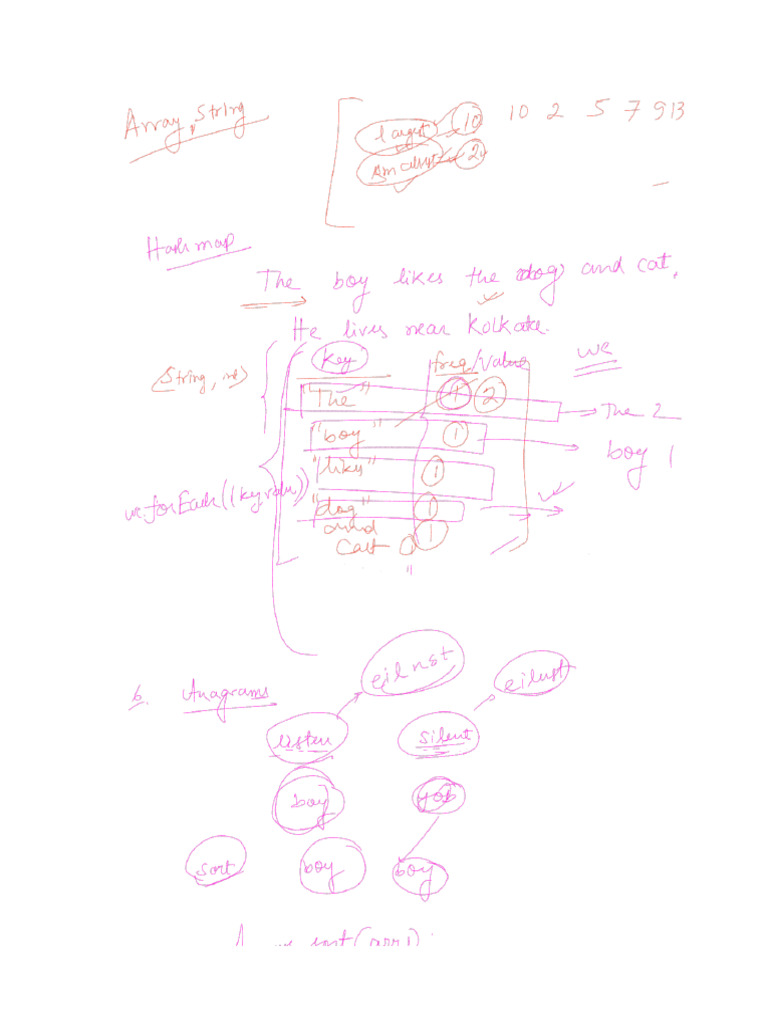 Array, String
largest 10 10 2 5 7 9 13
smallest 2
Hashmap
The boy likes the dog and cat.
He lives near Kolkata.
key freq/value we
(String, int)
"The" 1 2 The 2
"boy" 1 boy 1
"likes" 1
wc.forEach((key, value))
"dog" 1
and 1
Cat
6. Anagrams eilnst eilnst
listen silent
boy yob
sort boy boy